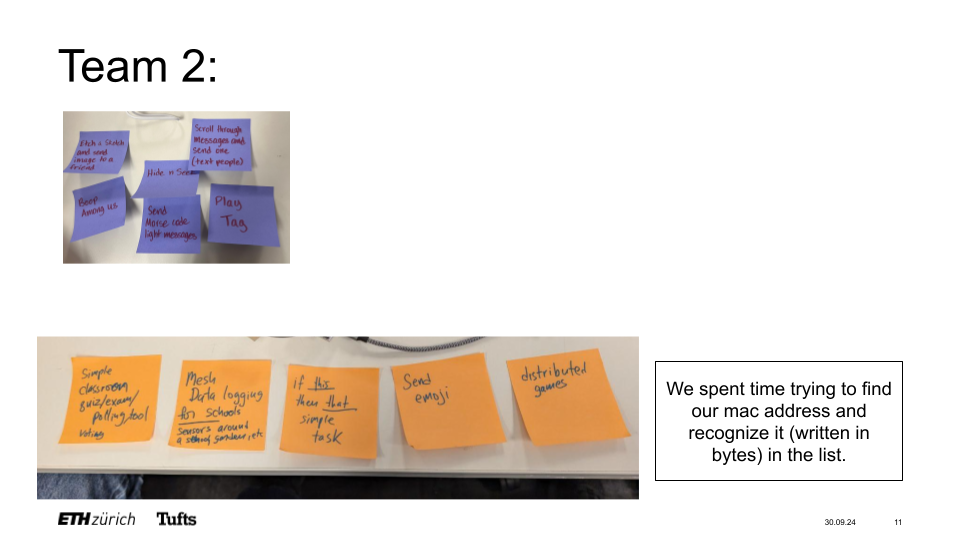 Team 2:
Etch a Sketch
and send
image to a
friend
Scroll through
messages and
send one
(text people)
Hide n Seek
Beep
Among us
Send
Morse code
light messages
Play
Tag
Simple
classroom
quiz/exam/
polling/tool
Voting
Mesh
Data logging
for schools
Sensors around
a school, etc
if this
then that
simple
task
Send
emoji
distributed
games
We spent time trying to find
our mac address and
recognize it (written in
bytes) in the list.
ETH zürich Tufts
30.09.24 11